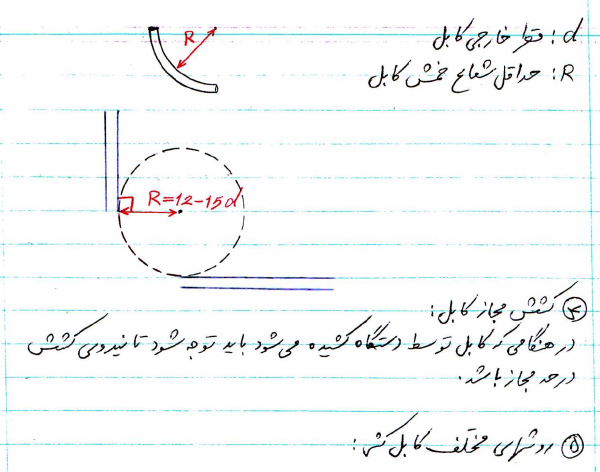 d : قطر خارجی کابل
R
R : حداقل شعاع خمش کابل
R=12-15d
④ کشش مجاز کابل :
در هنگامی که کابل توسط دستگاه کشیده می شود باید توجه شود تا نیروی کشش
در حد مجاز باشد.
⑤ روشهای مختلف کابل کشی :